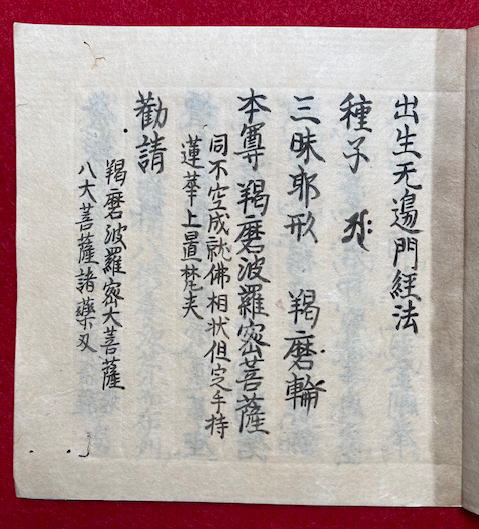 出生无邊門經法
種子
三昧耶形　羯磨輪
本尊　羯磨波羅蜜菩薩
同不空成就佛相状但定手持
蓮華上置梵夾
勸請
羯磨波羅蜜大菩薩
八大菩薩諸藥叉